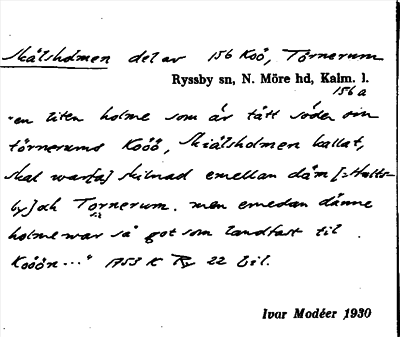 Skälsholmen del av 156 Koö, Törnerum
Ryssby sn, N. Möre hd, Kalm. l.
156 a
"en liten holme som är tätt söder om
törnerums Koöö, Skiälsholmen kallat,
skal wara[a] skilnad emellan däm [=Halts-
by] och Tornerum. men emedan dänne
holme war så got som landfast til
Koöön..." 1753 K Ry 22 bil.
Ivar Modéer 1930